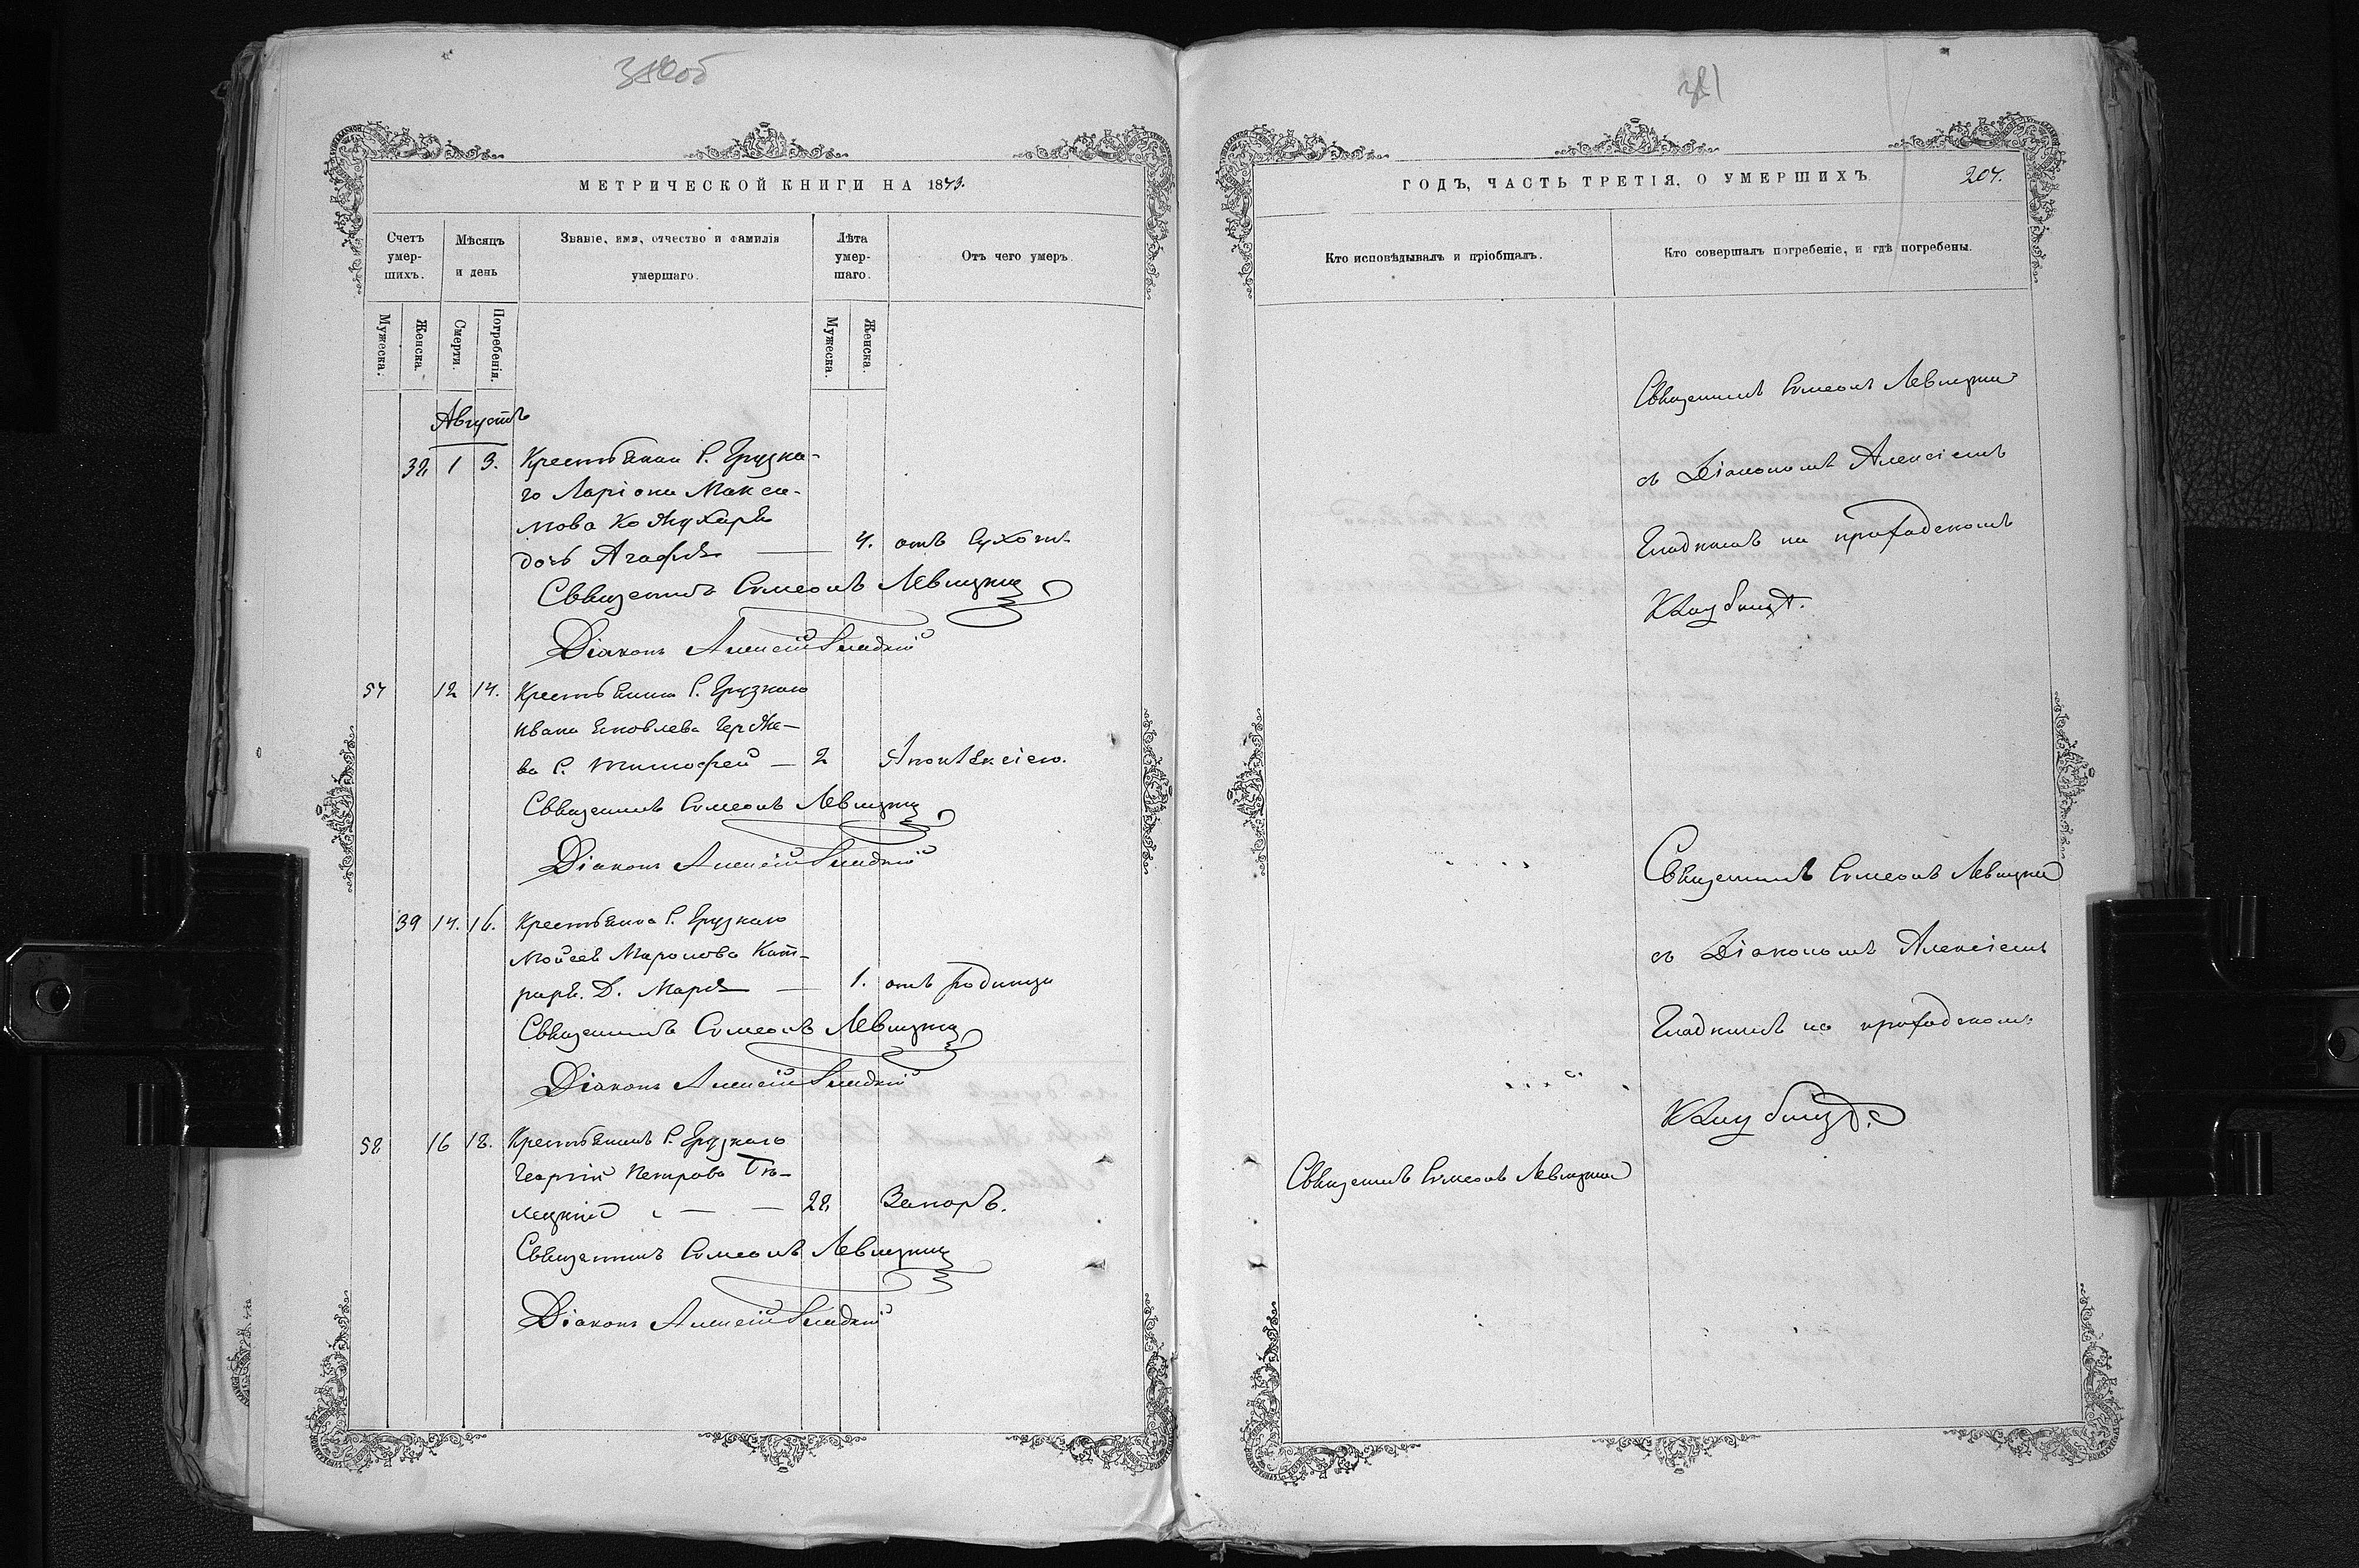 380об
МЕТРИЧЕСКОЙ КНИГИ НА 1873.
Счетъ умер-шихъ.
Мѣсяцъ и день
Званіе, имя, отчество и фамилія умершаго.
Лѣта умер-шаго.
Отъ чего умеръ.
Мужеска.
Женска.
Смерти.
Погребенія.
Мужеска.
Женска.
Августъ
38 1 3. Крестьянина С. Грузка-
го Ларіона Макси-
мова Кожухаря
дочь Агафія — 4. отъ сухоты
Священникъ Симеонъ Левицкій
Діаконъ Алексій Гладкій
57 12 14. Крестьянина С. Грузкаго
Ивана Яковлева
ва С. Тимофей — 2 Апоплексіею.
Священникъ Симеонъ Левицкій
Діаконъ Алексій Гладкій
39 14. 16. Крестьянина С. Грузкаго
Мойсея Миронова
Д. Марія — 1. отъ родимца
Священникъ Симеонъ Левицкій
Діаконъ Алексій Гладкій
58 16 18. Крестьянинъ С. Грузкаго
Георгій Петровъ
лецкій — — 28 Запоръ.
Священникъ Симеонъ Левицкій
Діаконъ Алексій Гладкій
381
ГОДЪ, ЧАСТЬ ТРЕТІЯ, О УМЕРШИХЪ.
207.
Кто исповѣдывалъ и пріобщалъ.
Кто совершалъ погребеніе, и гдѣ погребены.
Священникъ Симеонъ Левицкій
съ Діакономъ Алексіемъ
Гладкимъ на приходскомъ
Кладбищѣ.
Священникъ Симеонъ Левицкій
съ Діакономъ Алексіемъ
Гладкимъ на приходскомъ
Кладбищѣ.
Священникъ Симеонъ Левицкій